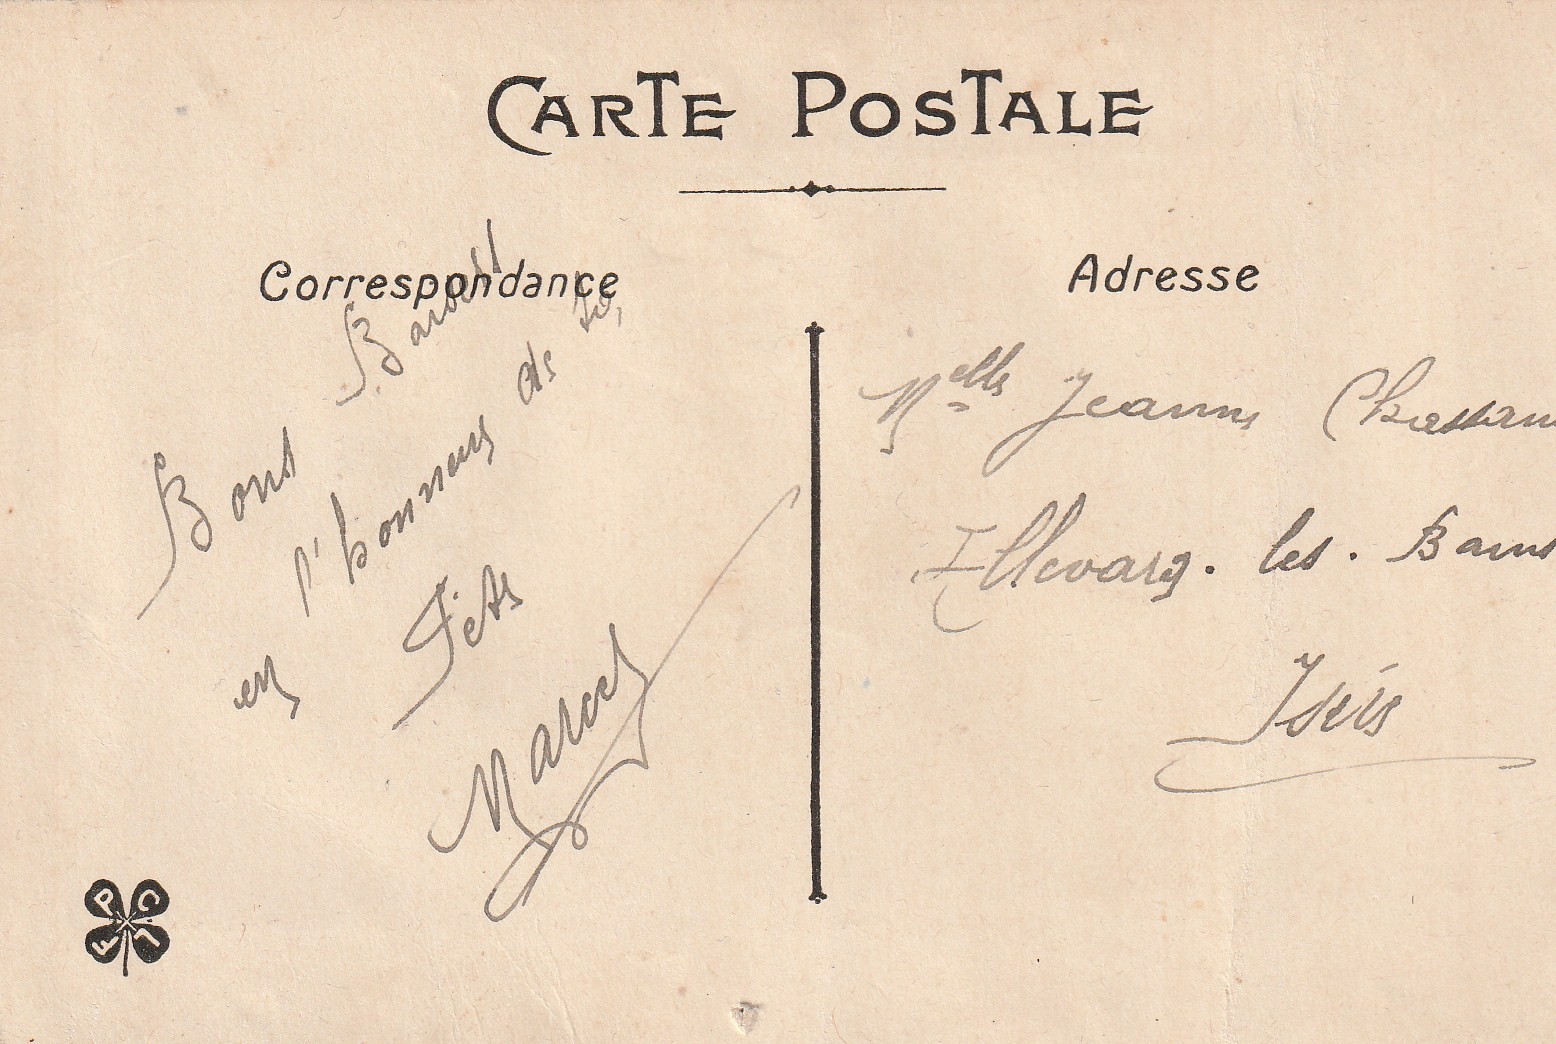 CARTE POSTALE
Correspondance
Bons Baisers
l'honneur de ta
en Fête
Marcel
Adresse
Melle Jeanne
Allevard. les. Bains
Isère
P C
F L